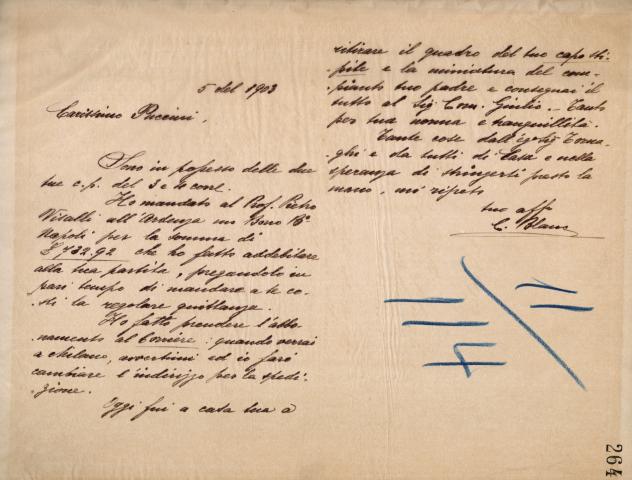 5 del 1903
Carissimo Puccini,
Sono in possesso delle due
tue c.p. del 3 e 4 corr.
Ho mandato al Prof. Pietro
Visalli all'Ardenza un Buono Bco
Napoli per la somma di
£732.92 che ho fatto addebitare
alla tua partita, pregandolo in
pari tempo di mandare a te co-
-sì la regolare quittanza.
Ho fatto prendere l'abbo-
-namento al Corriere: quando verrai
a Milano, avvertimi ed io farò
cambiare l'indirizzo per la spedi-
-zione.
Oggi fui a casa tua a
ritirare il quadro del tuo capo sti-
-pite e la miniatura del com-
-pianto tuo padre e consegnai il
tutto al Sig. Com. Giulio. - Tanto
per tua norma e tranquillità.
Tante cose dall' Sig Torna-
ghi e da tutti di Casa e nella
speranza di stringerti presto la
mano, mi ripeto
tuo aff
C. Blanc
11/4
264